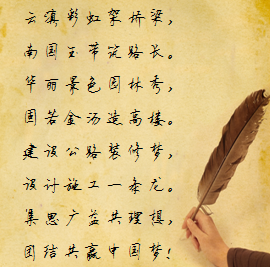 云滇彩虹架桥梁,
南国玉带筑路长。
华丽景色园林秀,
固若金汤造高楼。
建设公路装修梦,
设计施工一条龙。
集思广益共理想,
团结共赢中国梦!